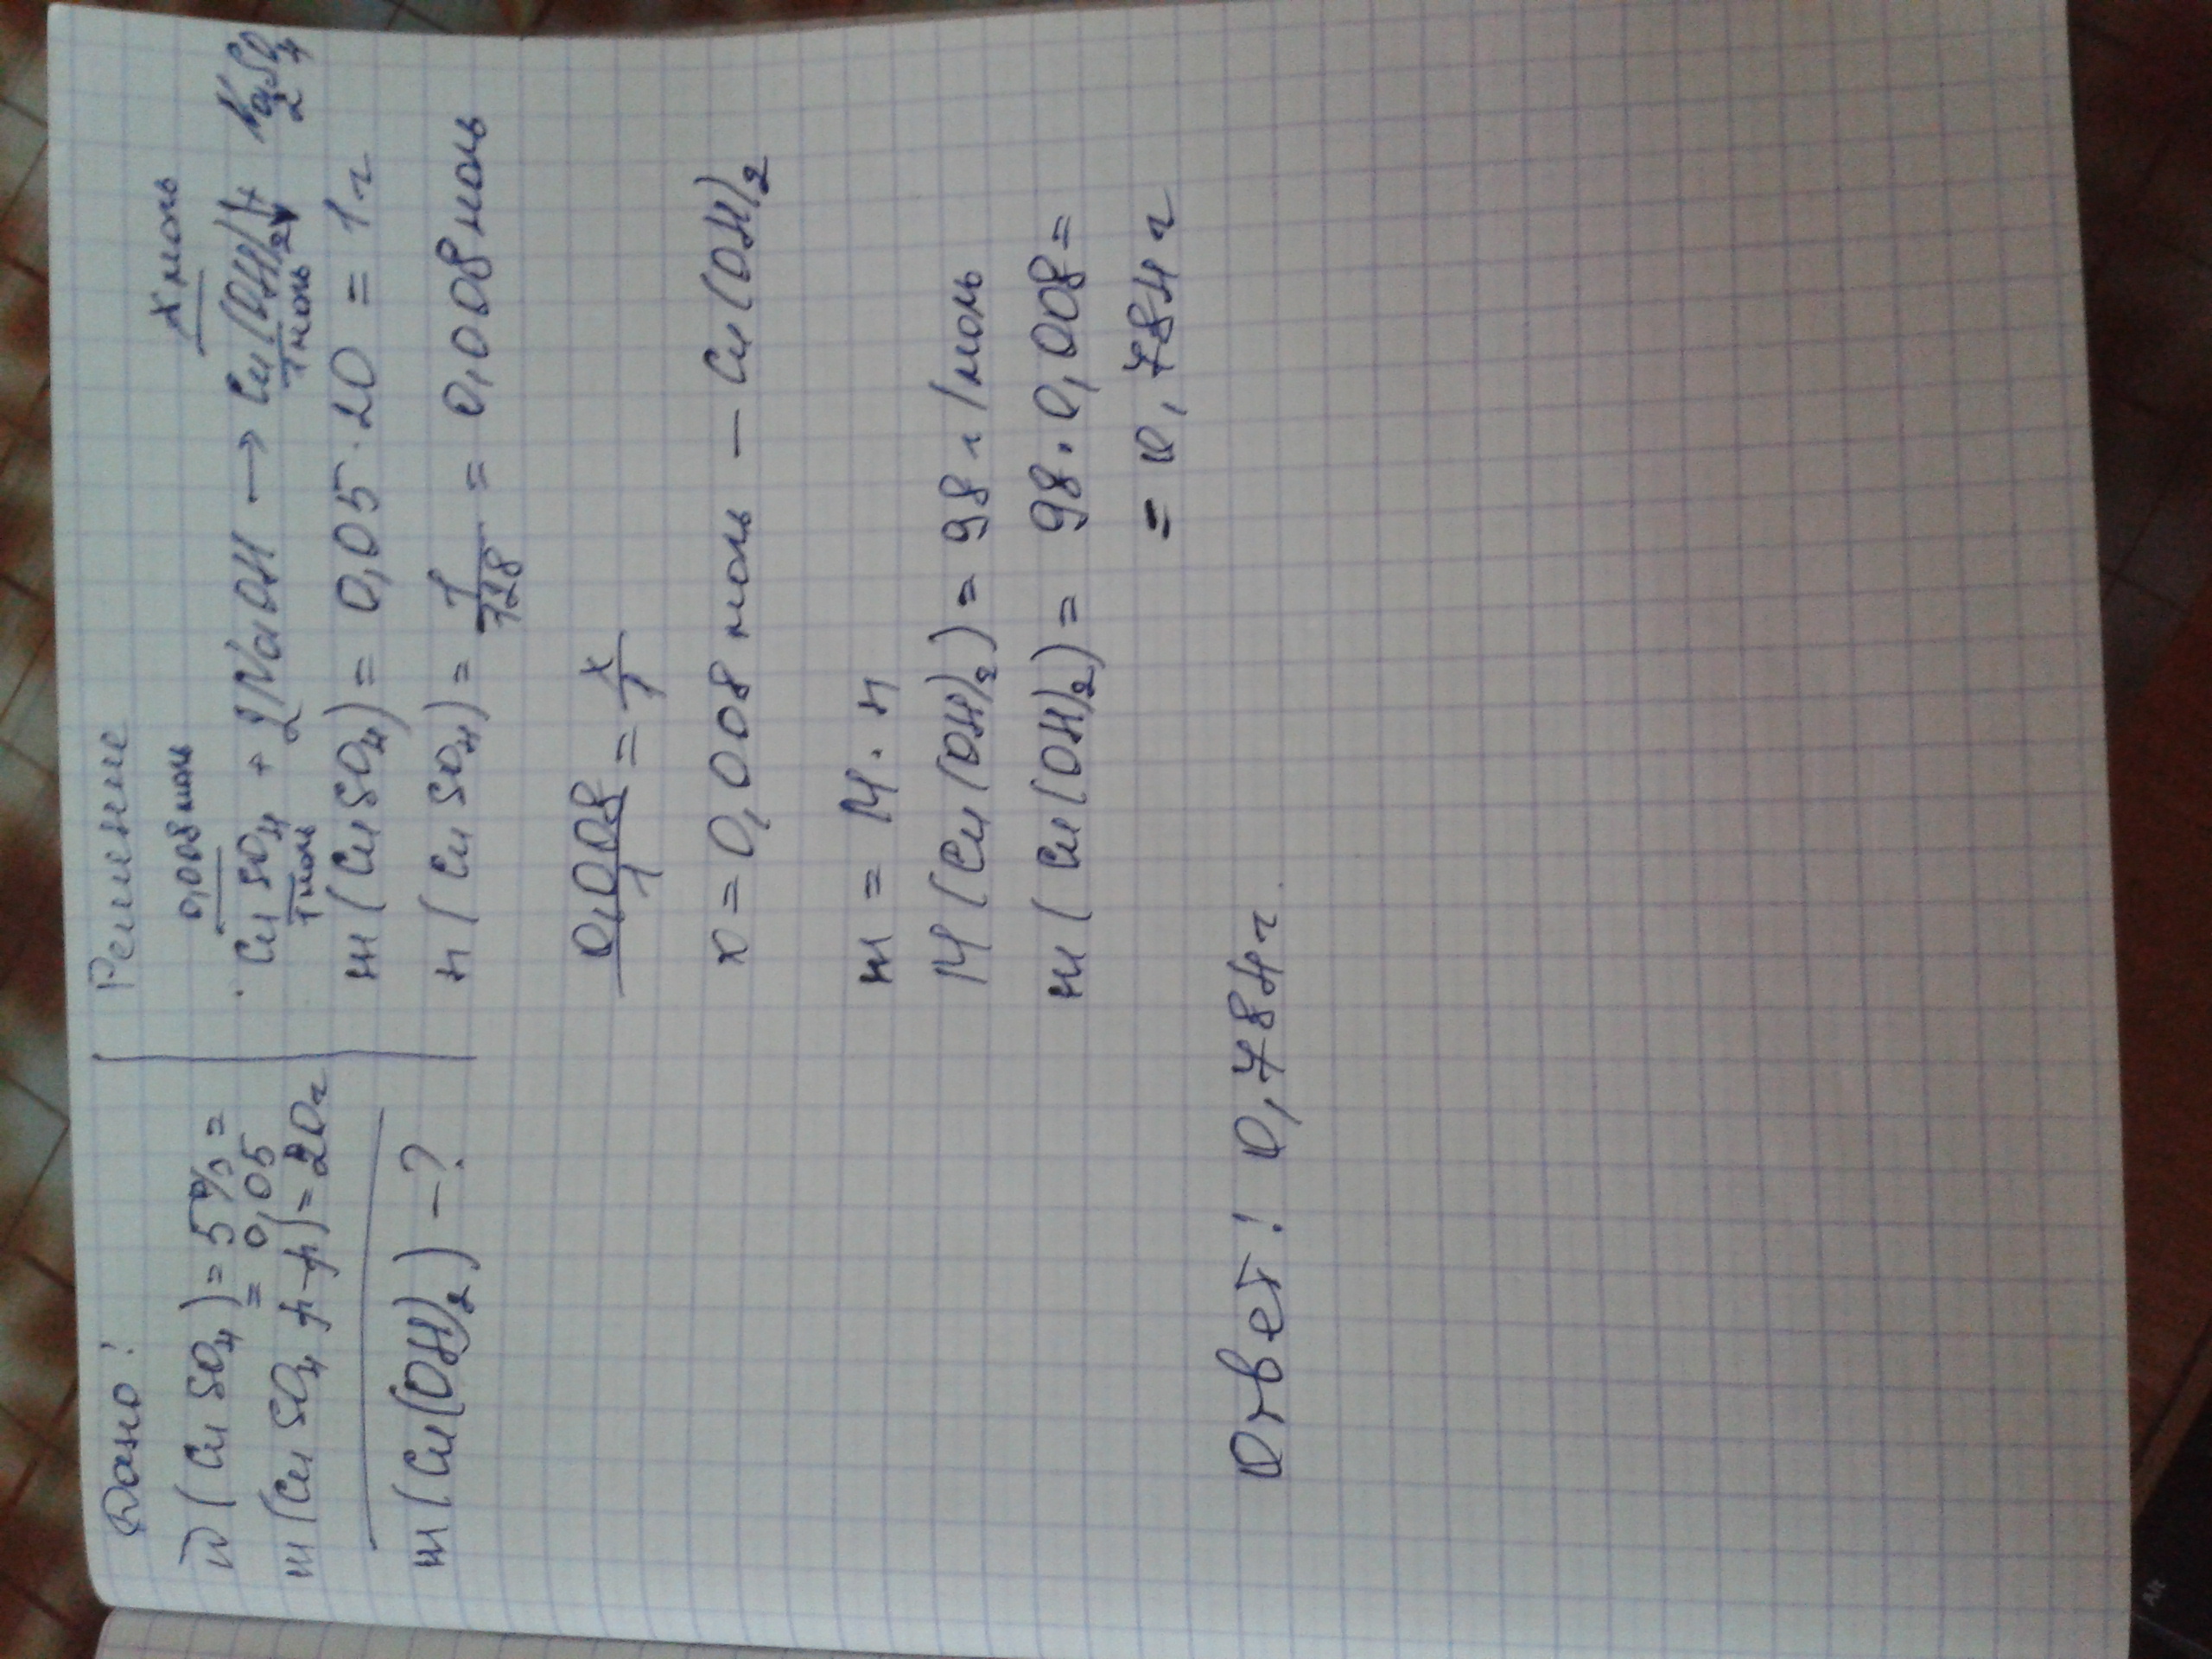 Дано:
W(CuSO4) = 5% =
= 0,05
m(CuSO4 р-р) = 20г
m(Cu(OH)2) - ?
Решение
0,008моль X моль
CuSO4 + 2NaOH → Cu(OH)2↓ + Na2SO4
1моль 1моль
m(CuSO4) = 0,05 · 20 = 1г
n(CuSO4) = 1/128 = 0,008моль
0,008/1 = x/1
x = 0,008 моль - Cu(OH)2
m = M · n
M(Cu(OH)2) = 98 г/моль
m(Cu(OH)2) = 98 · 0,008 =
= 0,784 г
Ответ: 0,784г.
Alt